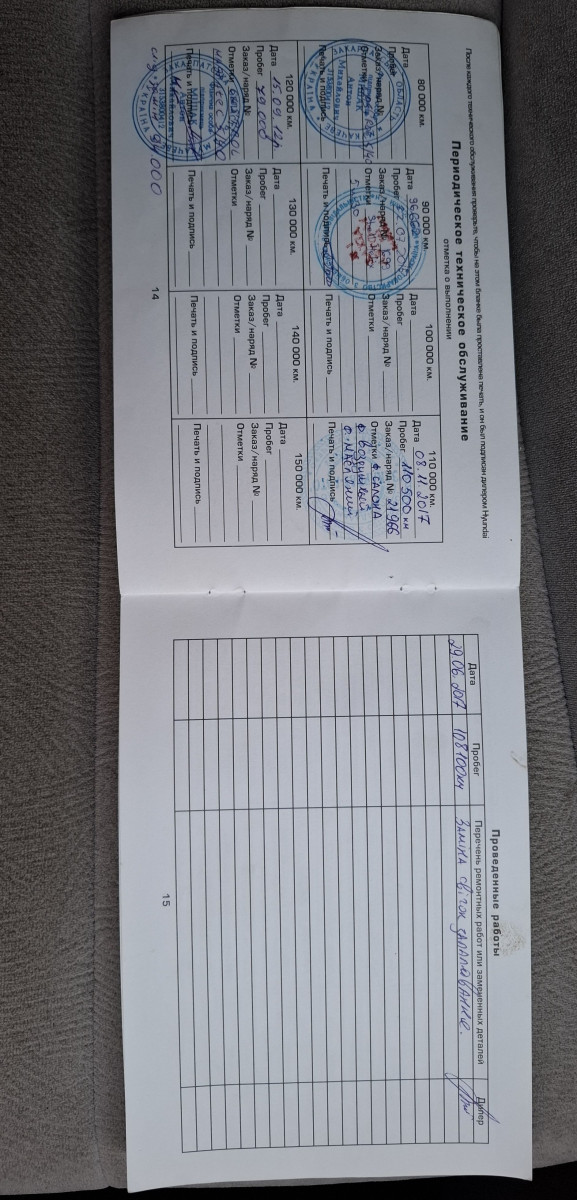 После каждого технического обслуживания проверьте, чтобы на этом бланке была проставлена печать, и он был подписан дилером Hyundai
Периодическое техническое обслуживание
отметка о выполнении
80 000 км.
Дата
Пробег
Заказ/наряд №
Отметки
Печать и подпись
90 000 км.
Дата
Пробег
Заказ/наряд №
Отметки
Печать и подпись
100 000 км.
Дата
Пробег
Заказ/наряд №
Отметки
Печать и подпись
110 000 км.
Дата 08.11.2017
Пробег 110 500 км
Заказ/наряд № 21966
Отметки ф. САЛОНА
ф. воздушный
ф. масляний
Печать и подпись
120 000 км.
Дата 15.09.
Пробег 79 000
Заказ/наряд №
Отметки
Печать и подпись
130 000 км.
Дата
Пробег
Заказ/наряд №
Отметки
Печать и подпись
140 000 км.
Дата
Пробег
Заказ/наряд №
Отметки
Печать и подпись
150 000 км.
Дата
Пробег
Заказ/наряд №
Отметки
Печать и подпись
14
Проведенные работы
Дата Пробег Перечень ремонтных работ или замененных деталей Дилер
29.06.2017 108100км ЗАМІНА свічок запалювання.
15